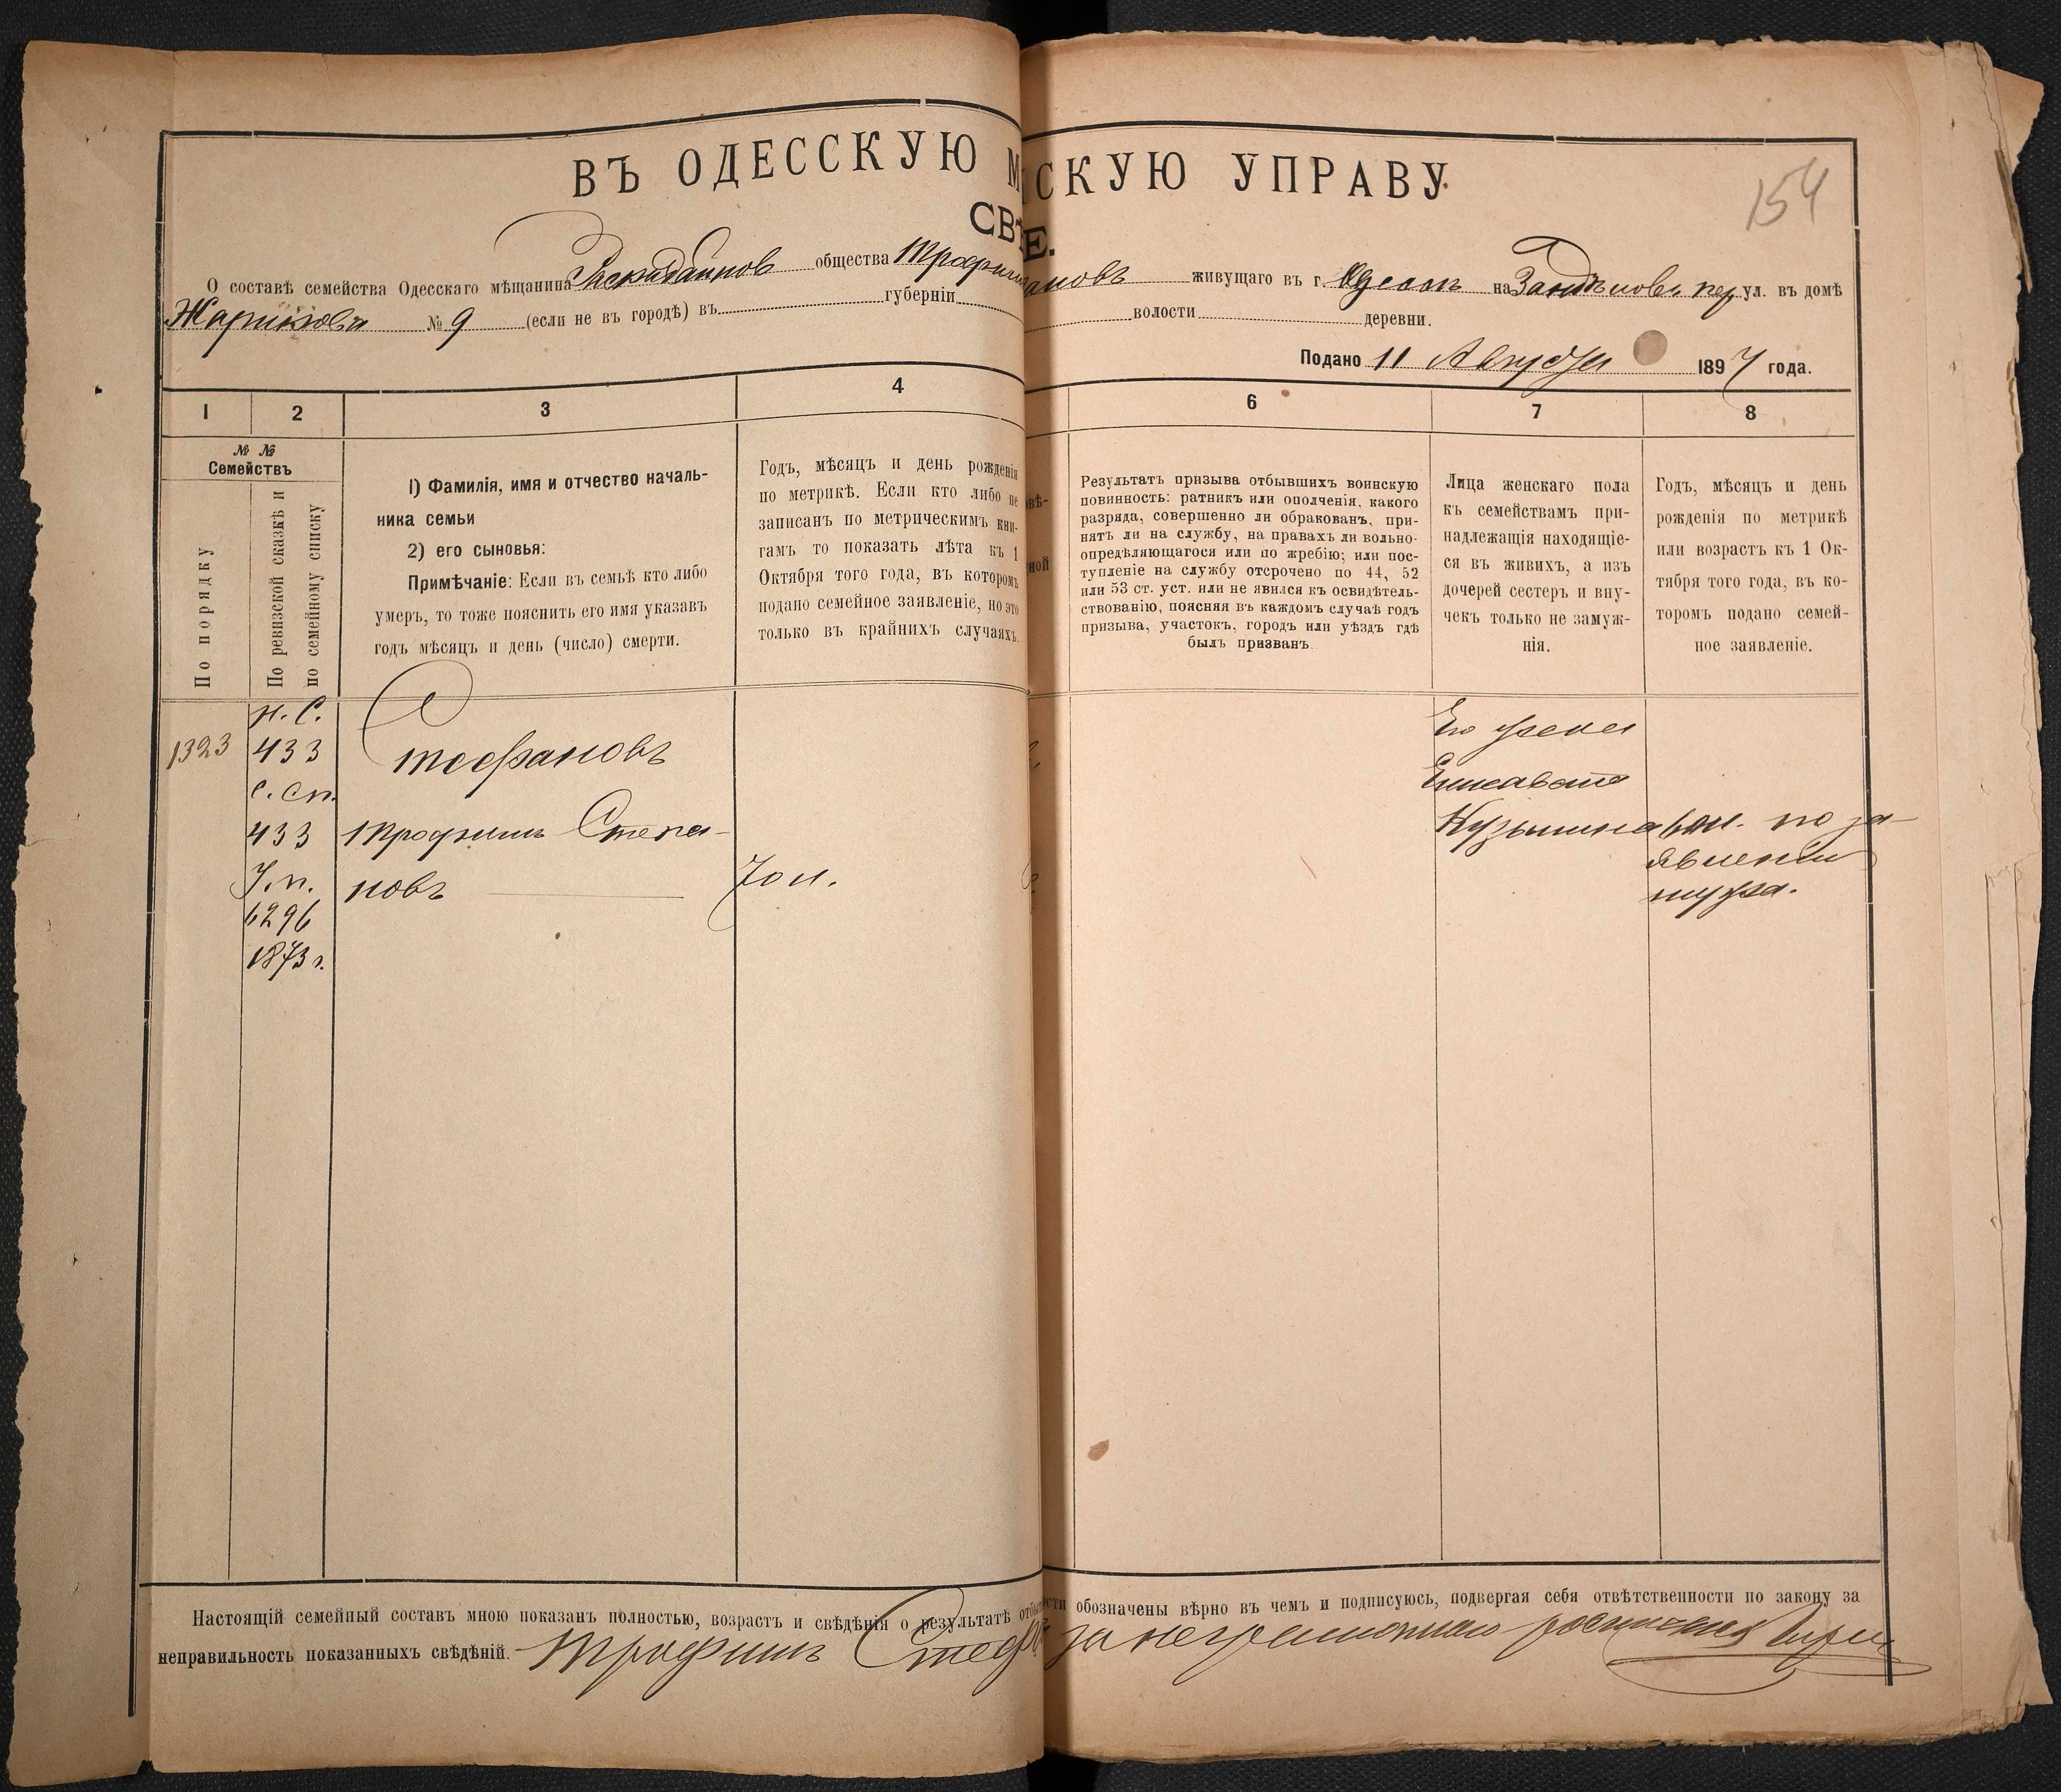 ВЪ ОДЕССКУЮ М СКУЮ УПРАВУ.
154
СВѢ Е.
О составѣ семейства Одесскаго мѣщанина общества Трофим ановъ живущаго въ г. Одессѣ на пер. ул. въ домѣ
Жарикова № 9 (если не въ городѣ) въ губерніи волости деревни.
Подано 11 Августа 1897 года.
1 2 3 4 6 7 8
№ №
Семействъ
По порядку
По ревизской сказкѣ и
по семейному списку
1) Фамилія, имя и отчество началь-
ника семьи
2) его сыновья:
Примѣчаніе: Если въ семьѣ кто либо
умеръ, то тоже пояснить его имя указавъ
годъ мѣсяцъ и день (число) смерти.
Годъ, мѣсяцъ и день рожденія
по метрикѣ. Если кто либо не
записанъ по метрическимъ кни-
гамъ то показать лѣта къ 1
Октября того года, въ которомъ
подано семейное заявленіе, но это
только въ крайнихъ случаяхъ.
вѣ-
ной
Результатъ призыва отбывшихъ воинскую
повинность: ратникъ или ополченія, какого
разряда, совершенно ли обракованъ, при-
нятъ ли на службу, на правахъ ли вольно-
опредѣляющагося или по жребію; или пос-
тупленіе на службу отсрочено по 44, 52
или 53 ст. уст. или не явился къ освидѣтель-
ствованію, поясняя въ каждомъ случаѣ годъ
призыва, участокъ, городъ или уѣздъ гдѣ
былъ призванъ
Лица женскаго пола
къ семействамъ при-
надлежащія находящіе-
ся въ живихъ, а изъ
дочерей сестеръ и вну-
чекъ только не замуж-
нія.
Годъ, мѣсяцъ и день
рожденія по метрикѣ
или возрастъ къ 1 Ок-
тября того года, въ ко-
торомъ подано семей-
ное заявленіе.
1323
н. С.
433
с. сп.
433
У. п.
6296
1873 г.
Стефановъ
Трофимъ Степа-
новъ
70 л.
Его жена
Елисавета
Кузьмина
60 л. по за-
явленію
мужа.
Настоящій семейный составъ мною показанъ полностью, возрастъ и свѣдѣнія о результатѣ отбы сти обозначены вѣрно въ чемъ и подписуюсь, подвергая себя отвѣтственности по закону за
неправильность показанныхъ свѣдѣній. Трофимъ Стеф за неграмотнаго росписался